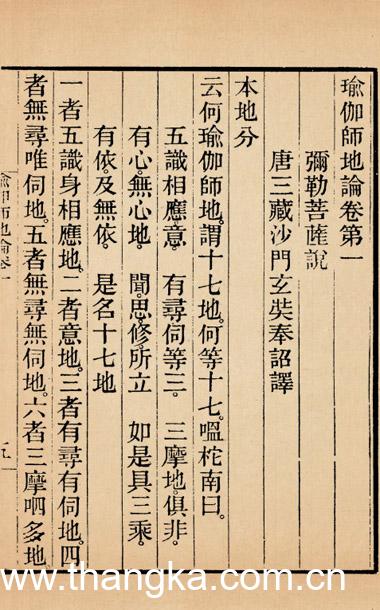 瑜伽師地論卷第一
彌勒菩薩說
唐三藏沙門玄奘奉詔譯
本地分
云何瑜伽師地。謂十七地。何等十七。嗢柁南曰。
五識相應意　有尋伺等三　三摩地俱非
有心無心地　聞思修所立　如是具三乘
有依及無依　是名十七地
一者五識身相應地。二者意地。三者有尋有伺地。四
者無尋唯伺地。五者無尋無伺地。六者三摩呬多地。
www.thangka.com.cn